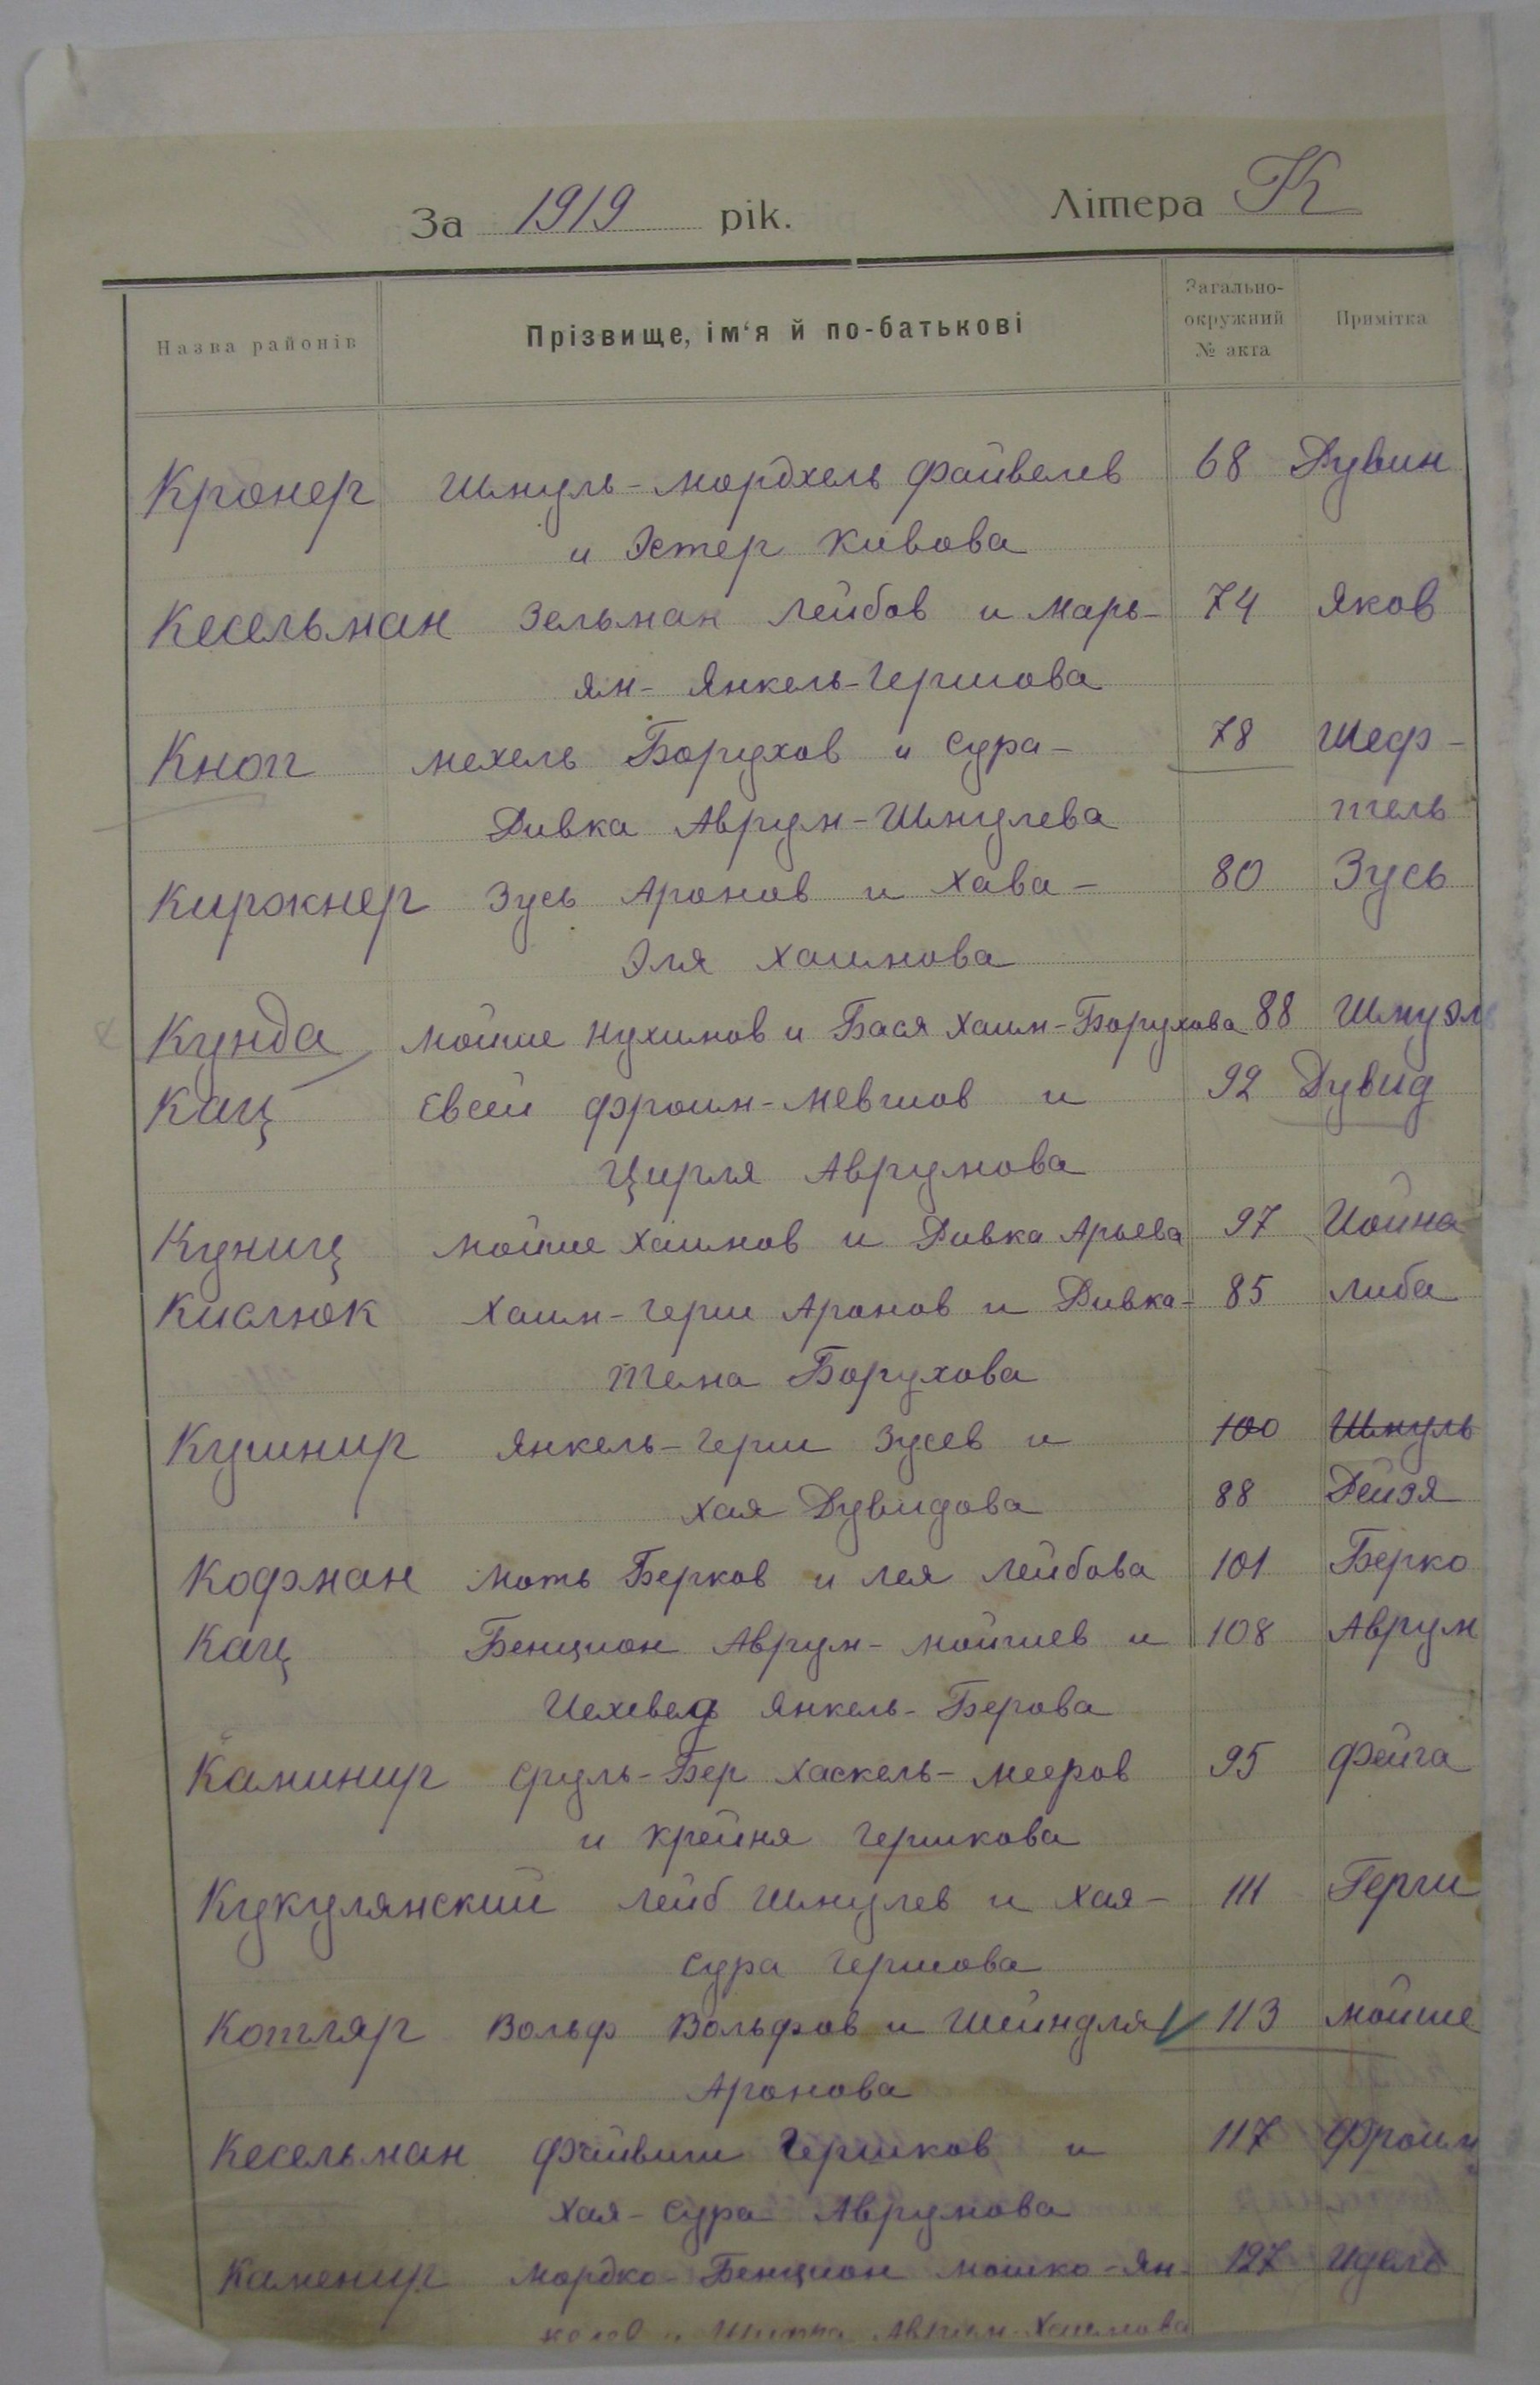 За 1919 рік. Літера К
Назва районів Прізвище, ім'я й по-батькові Загально-окружний № акта Примітка
Кронер Шмуль-Мордхель Файвелев 68 Рувин
и Эстер Кивова
Кесельман Зельман Лейбов и Марь- 74 Яков
ям-Янкель-Гершова
Кноп Мехель Борухов и Сура- 78 Шеф-
Ривка Аврум-Шмулева тель
Киржнер Зусь Аронов и Хава- 80 Зусь
Эля Хаимова
Кунда Мойше Нухимов и Бася Хаим-Борухова 88 Шмуэль
Кац Евсей Фроим-Мевшов и 92 Дувид
Цирля Аврумова
Куниц Мойше Хаимов и Ривка Арьева 97 Иойна
Кислюк Хаим-Герш Аронов и Ривка- 85 Либа
Тема Борухова
Кушнир Янкель-Герш Зусев и 100 Шмуль
Хая Дувидова 88 Рейзя
Кофман Моть Берков и Лея Лейбова 101 Берко
Кац Бенцион Аврум-Мойшев и 108 Аврум
Иехевед Янкель-Берова
Каминир Сруль-Бер Хаскель-Мееров 95 Фейга
и Крейня Гершкова
Кукулянский Лейб Шмулев и Хая- 111 Герш
Сура Гершова
Котляр Вольф Вольфов и Шейндля 113 Мойше
Аронова
Кесельман Файвиш Гершков и 117 Фроим
Хая-Сура Аврумова
Каменир Мордко-Бенцион Мошко-Ян- 127 Идель
келев и Аврум-Хаимова